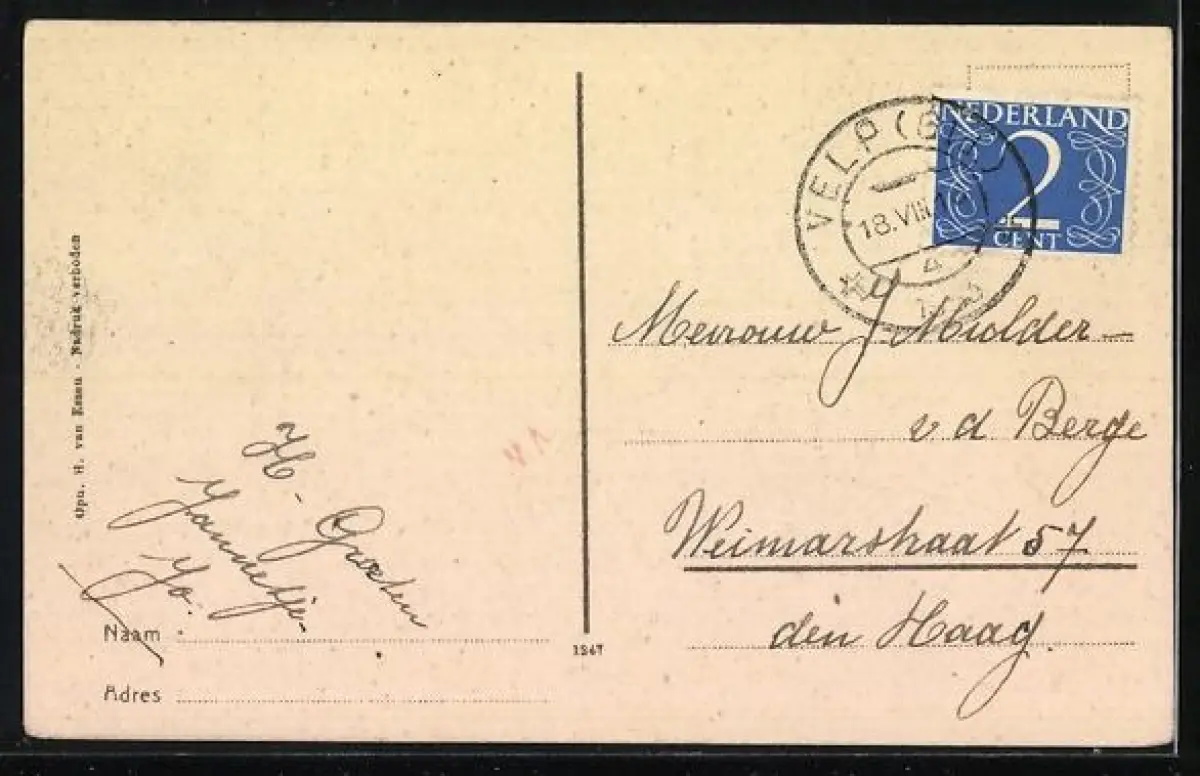 NEDERLAND
2
CENT
VELP (GLD)
18.VIII
4
Mevrouw J Mulder-
v d Berge
Weimarstraat 57
den Haag.
H. Groeten
Jannetje
Jo.
Naam
Adres
1247
Opn. H. van Essen - Nadruk verboden